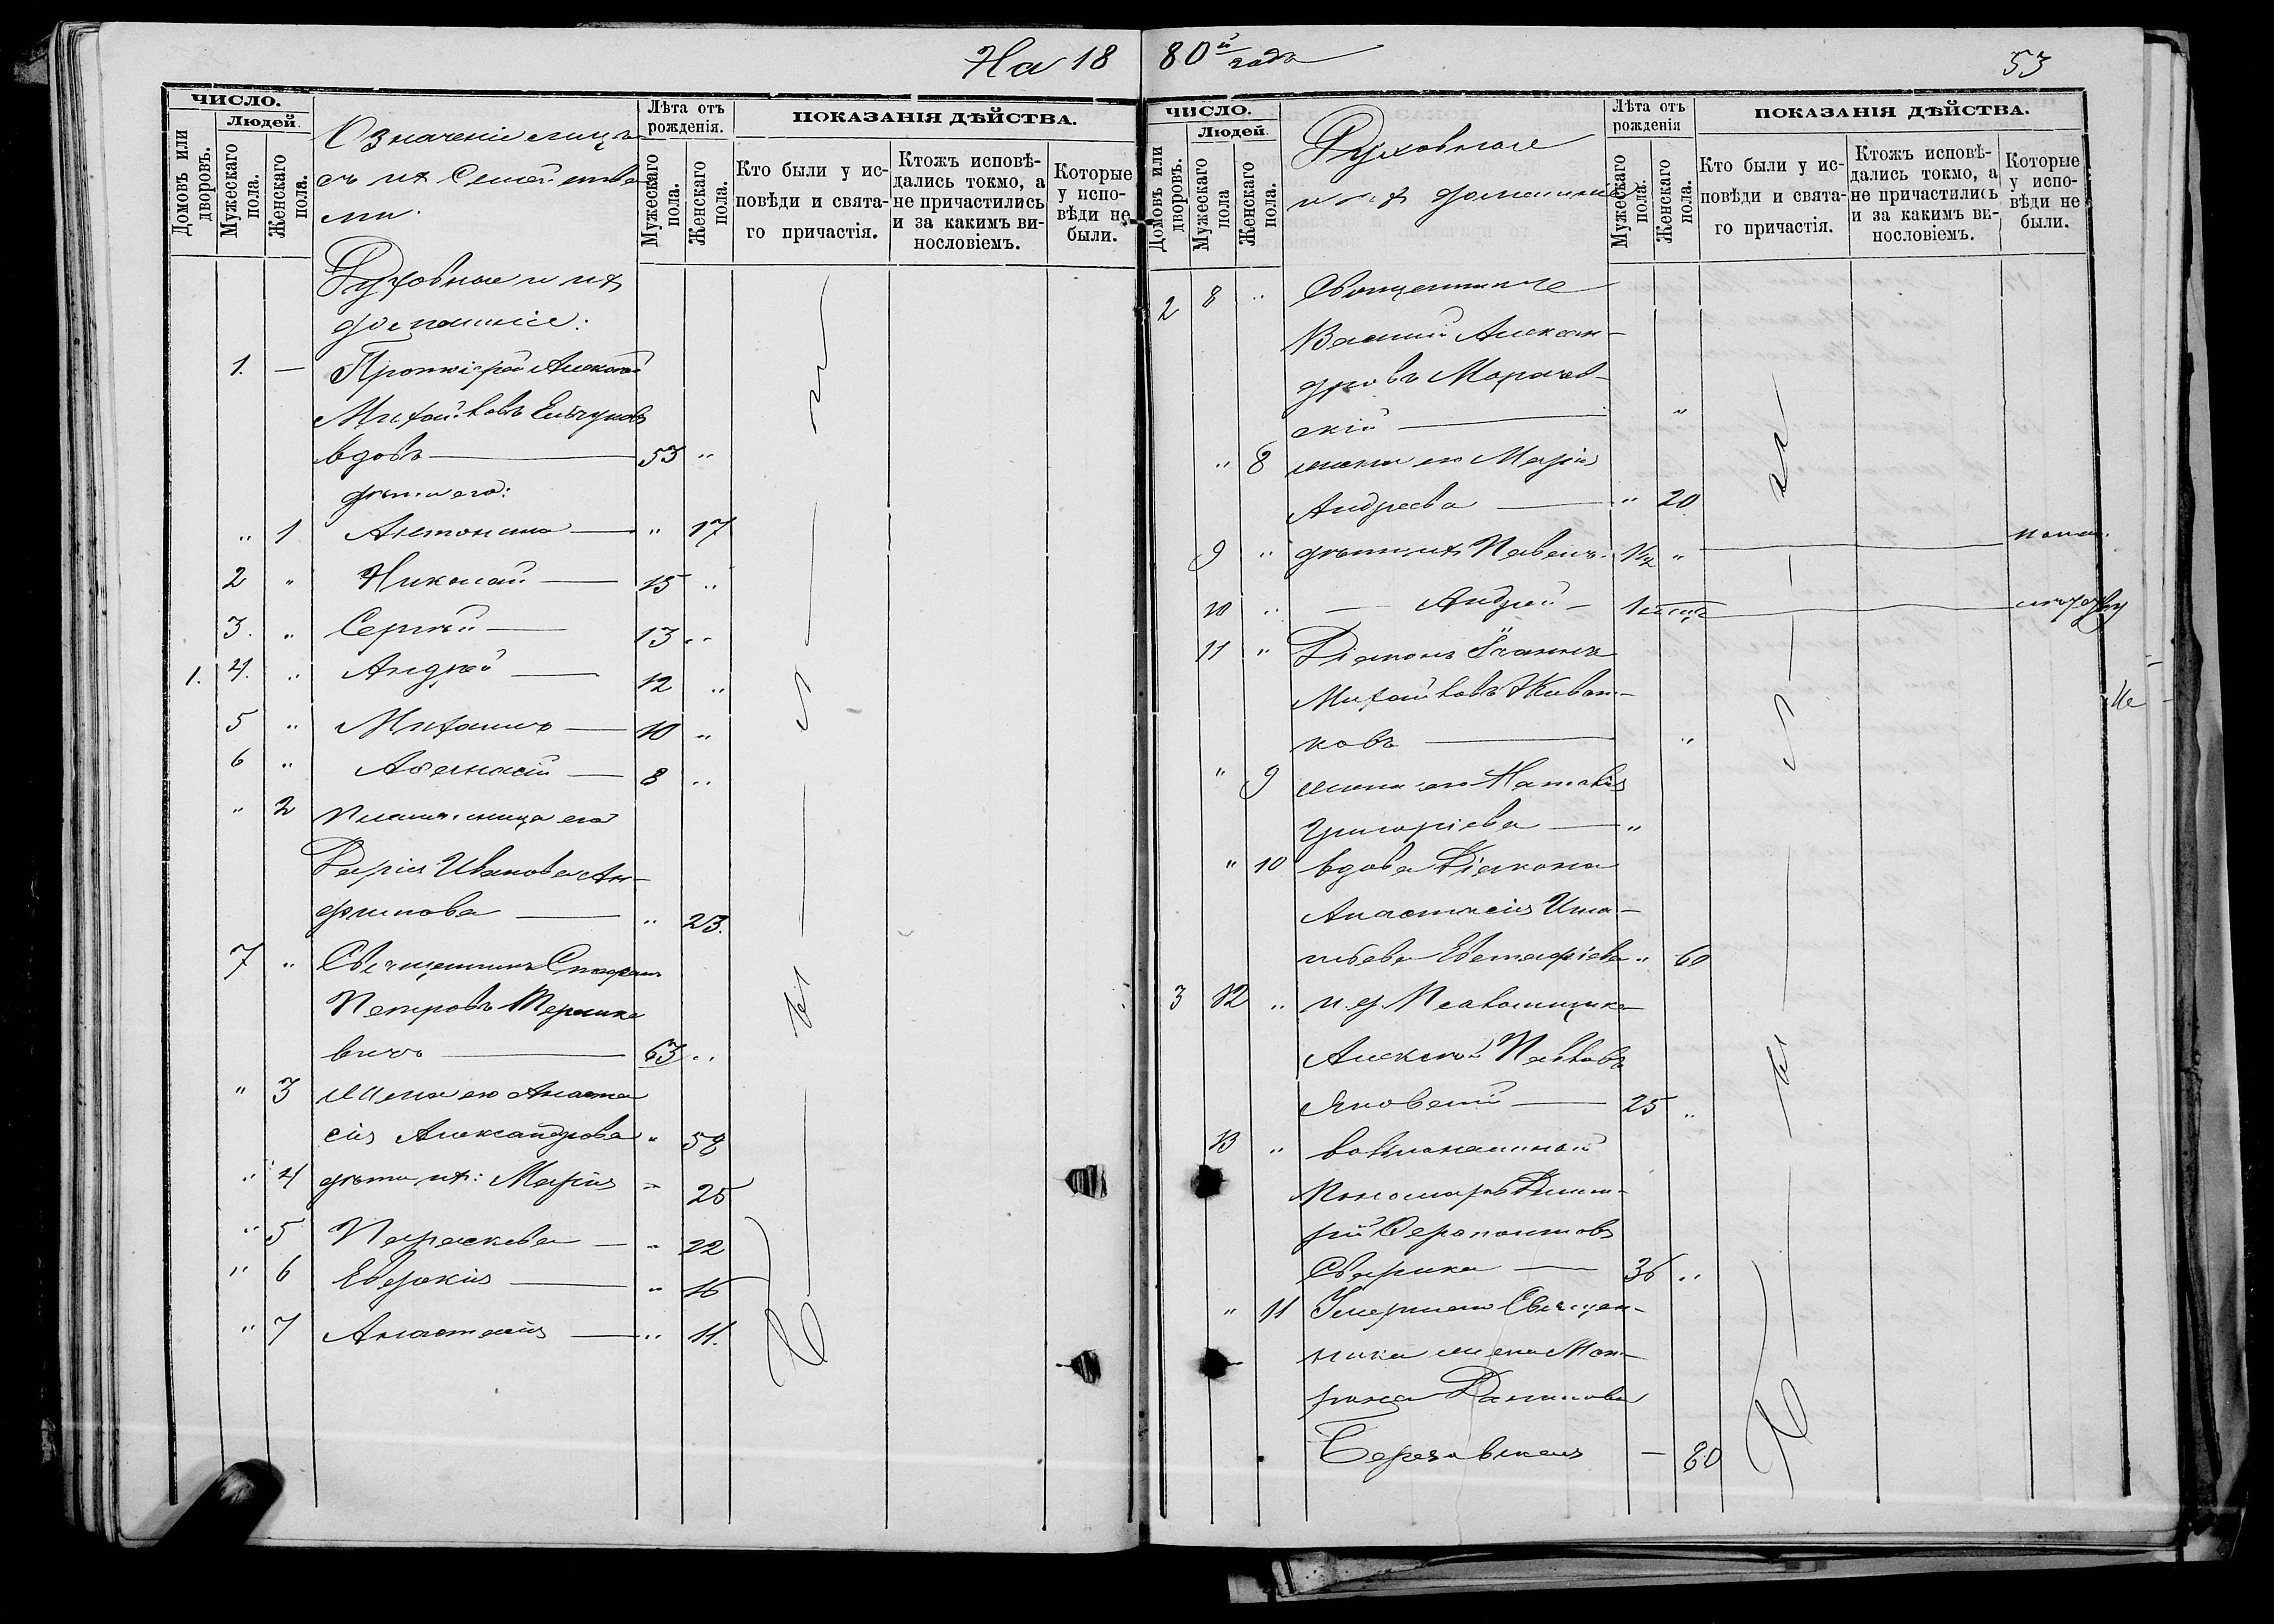 На 18
ЧИСЛО.
Людей.
Домовъ или дворовъ.
Мужескаго пола.
Женскаго пола.
Означеніе лицъ
съ ихъ Семейства
ми.
Лѣта отъ
рожденія.
Мужескаго пола.
Женскаго пола.
ПОКАЗАНІЯ ДѢЙСТВА.
Кто были у ис-
повѣди и свята-
го причастія.
Ктожъ исповѣ-
дались токмо, а
не причастились
и за какимъ ви-
нословіемъ.
Которые
у испо-
вѣди не
были.
Духовные и ихъ
домашніе:
1. — Протоіерей Алексѣй
Михайловъ
вдовъ — 53 "
дѣти его:
" 1 Антонина — " 17
2 " Николай — 15 "
3. " Сергѣй — 13 "
1. 4. " Андрей — 12 "
5 " Михаилъ — 10 "
6 " Аѳанасій — 8 "
" 2 Племянница его
Дарія Иванова Ан-
дрикова — " 23.
7 " Священникъ
Петровъ
вичъ — 63 "
" 3 жена его Анаста
сія Александрова " 58
" 4 дѣти ихъ: Марія " 25
" 5 Параскева — " 22
" 6 Евдокія — " 16
" 7 Анастасія — " 11.
Б ы л и
80й года
53
ЧИСЛО.
Людей.
Домовъ или дворовъ.
Мужескаго пола
Женскаго пола.
Духовные
и ихъ домашніе
Лѣта отъ
рожденія
Мужескаго пола.
Женскаго пола.
ПОКАЗАНІЯ ДѢЙСТВА.
Кто были у ис-
повѣди и свята-
го причастія.
Ктожъ исповѣ-
дались токмо, а
не причастились
и за какимъ ви-
нословіемъ.
Которые
у испо-
вѣди не
были.
2 8 " Священникъ
Василій Алексан-
дровъ Марачев-
скій — "
" 8 жена его Марія
Андреева — " 20
9 " дѣти ихъ Павелъ 1½ "
10 " — Андрей —
11 " Діаконъ Іоаннъ
Михайловъ
ковъ — "
" 9 жена его Наталія
Григоріева — "
" 10 вдова Діакона
Анастасія Игна-
тьева " 60
3 12 " и. д. Псаломщика
Алексѣй Павловъ
Яновскій — 25 "
13 "
Пономарь Дмит-
рій Ферапонтовъ
Сварика — 36 "
" 11 Умершаго Священ-
ника жена Мат-
рона Данилова
Березовская — 80
Б ы л и